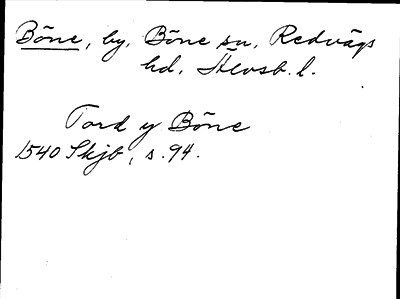 Böne, by, Böne sn, Redvägs
hd, Älvsb. l.
Tord y Böne
1540 Skjb, s. 94.